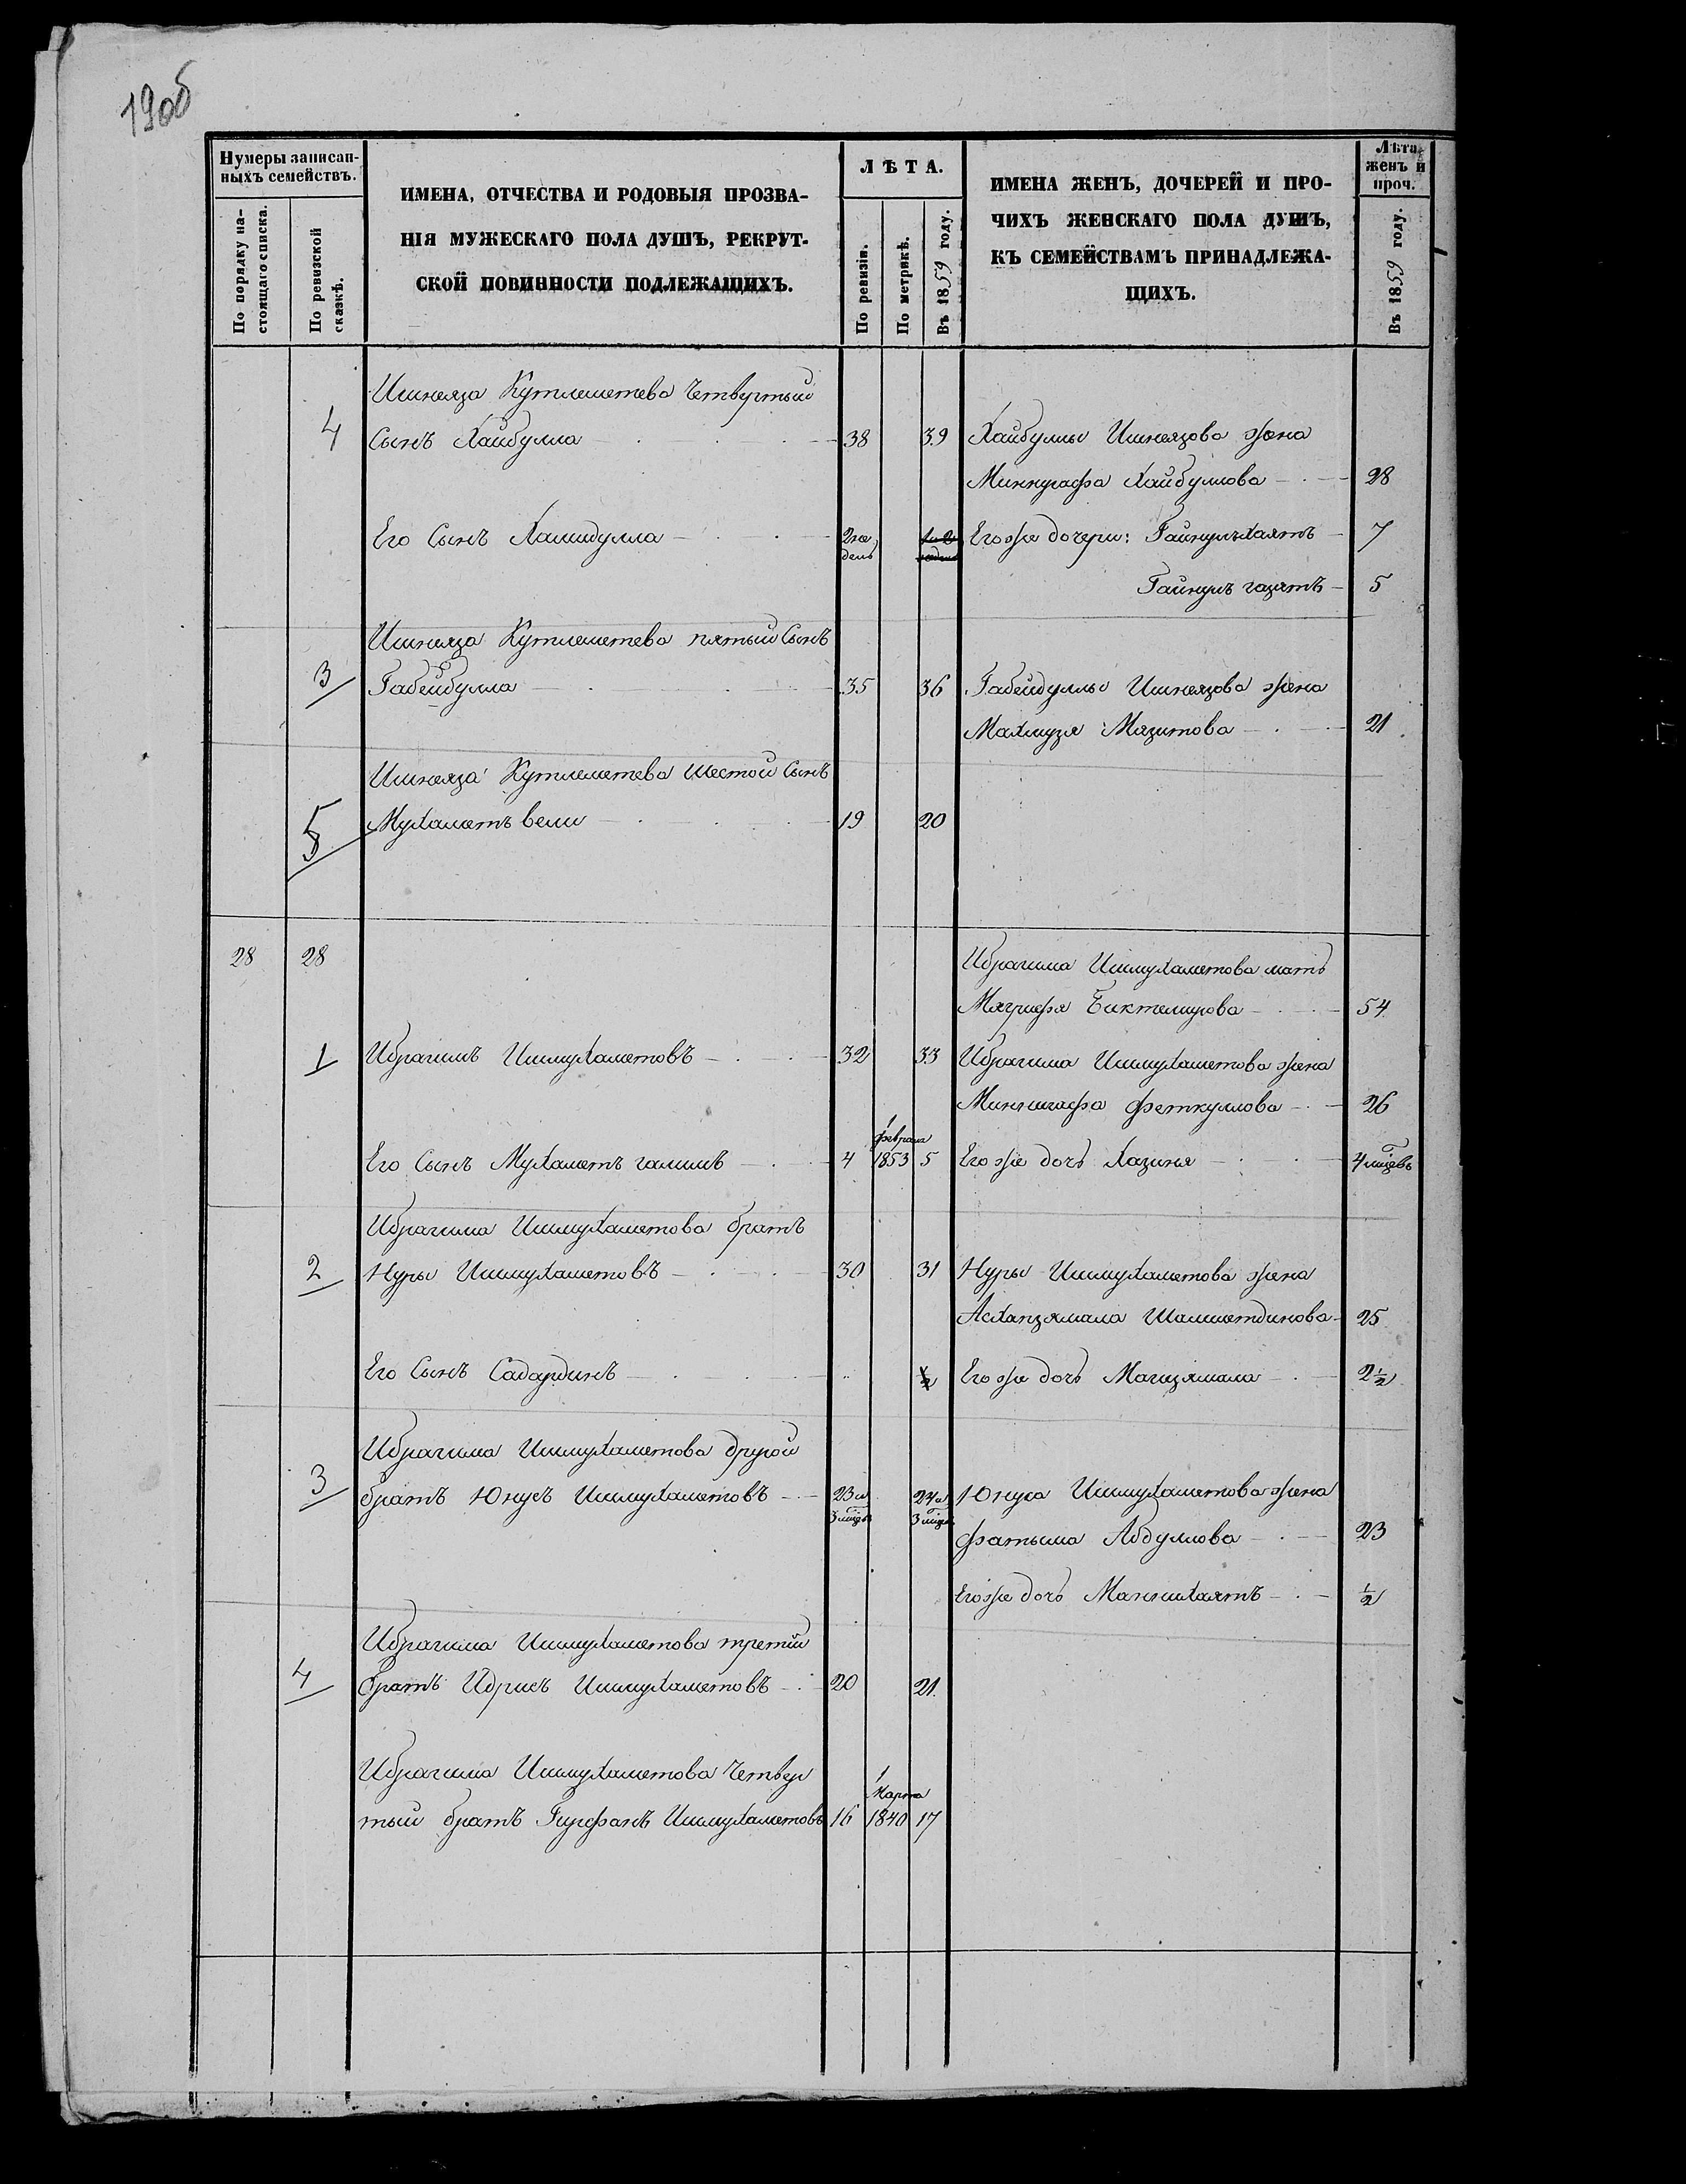 190об
Нумеры записан-
ныхъ семействъ.
По порядку на-
стоящаго списка.
По ревизской
сказкѣ.
ИМЕНА, ОТЧЕСТВА И РОДОВЫЯ ПРОЗВА-
НІЯ МУЖЕСКАГО ПОЛА ДУШЪ, РЕКРУТ-
СКОЙ ПОВИННОСТИ ПОДЛЕЖАЩИХЪ.
ЛѢТА.
По ревизіи.
По метрикѣ.
Въ 1859 году.
ИМЕНА ЖЕНЪ, ДОЧЕРЕЙ И ПРО-
ЧИХЪ ЖЕНСКАГО ПОЛА ДУШЪ,
КЪ СЕМЕЙСТВАМЪ ПРИНАДЛЕЖА-
ЩИХЪ.
Лѣта
женъ и
проч.
Въ 1859 году.
Ишнеяза Кутлеметева четвертый
4 Сынъ Хайбулла 38 39 Хайбуллы Ишнеязова жена
Миннурафа Хайбуллова 28
Его Сынъ Хамидулла 2 не Его же дочери: Гайнулхаятъ 7
дель
Гайнулъ газятъ 5
Ишнеяза Кутлеметева пятый Сынъ
3 Габейдулла 35 36 Габейдуллы Ишнеязова жена
Махмузя Мязитова 21
Ишнеяза Кутлеметева шестой Сынъ
5 Мухаметъ вели 19 20
28 28 Ибрагима Ишмухаметова мать
Мягрифя Биктемирова 54
1 Ибрагимъ Ишмухаметовъ 32 33 Ибрагима Ишмухаметова жена
Миннигафа Феткуллова 26
1 февраля
Его Сынъ Мухаметъ галимъ 4 1853 5 Его же дочь Хазиня 4 мцевъ
Ибрагима Ишмухаметова братъ
2 Нуры Ишмухаметовъ 30 31 Нуры Ишмухаметова жена
Асхапзямала Шамшетдинова 25
Его Сынъ Садардинъ ½ Его же дочь Магизямала 2½
Ибрагима Ишмухаметова другой
3 братъ Юнусъ Ишмухаметовъ 23 и 24 и Юнуса Ишмухаметова жена
3 мцв 3 мцв
Фатыма Абдуллова 23
Его же дочь Маннихаятъ ½
Ибрагима Ишмухаметова третій
4 братъ Идрисъ Ишмухаметовъ 20 21
Ибрагима Ишмухаметова четвер
1 Марта
тый братъ Гирфанъ Ишмухаметовъ 16 1840 17